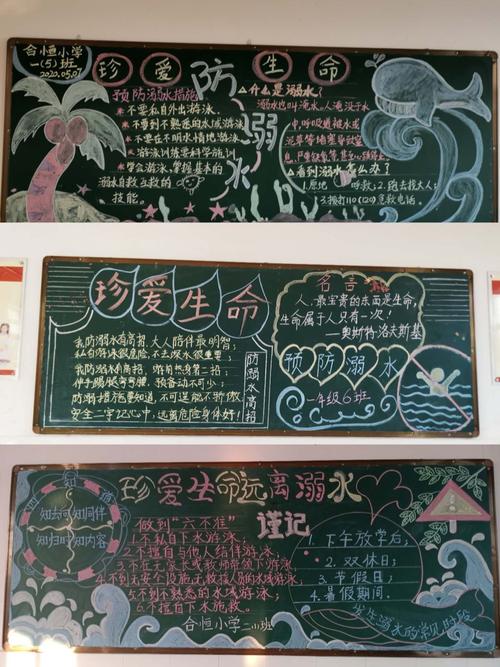 合恒小学
一(5)班
2020.05.07
珍爱生命
防溺水
预防溺水措施
不要私自外出游泳.
不要到不熟悉的水域游泳
不要在不明水情地游泳
游泳训练要科学施训
学会游泳,掌握基本的
溺水自救互救的
技能。
什么是溺水?
溺水也叫淹水。人淹没于水
中,呼吸道被水或
泥草等堵塞导致窒
看到溺水怎么办?
1.原地 呼救;2.跑去找大人;
3.拨打110(120)急救电话。
珍爱生命
我防溺水有高招,大人陪伴最明智;
私自游泳很危险,不去深水很重要;
我防溺水有高招,游前热身第二招;
伸手踢腿弯弯腰,预备动不可少;
防溺措施要知道,不可逞能不骄傲
安全二字记心中,远离危险身体好!
防溺水高招
名言
人,最宝贵的东西是生命,
生命属于人只有一次!
——奥斯特洛夫斯基
预防溺水
一年级6班
珍爱生命远离溺水
四知道
知去向 知同伴
知归时 知内容
做到“六不准”
1.不私自下水游泳;
2.不擅自与他人结伴游泳;
3.不在无家长或教师带领下游泳
4.不到无安全设施、无救援人员的水域游泳;
5.不到不熟悉的水域游泳;
6.不擅自下水施救。
合恒小学二(1)班
谨记
1.下午放学后;
2.双休日;
3.节假日;
4.暑假期间.
发生溺水的常见时段